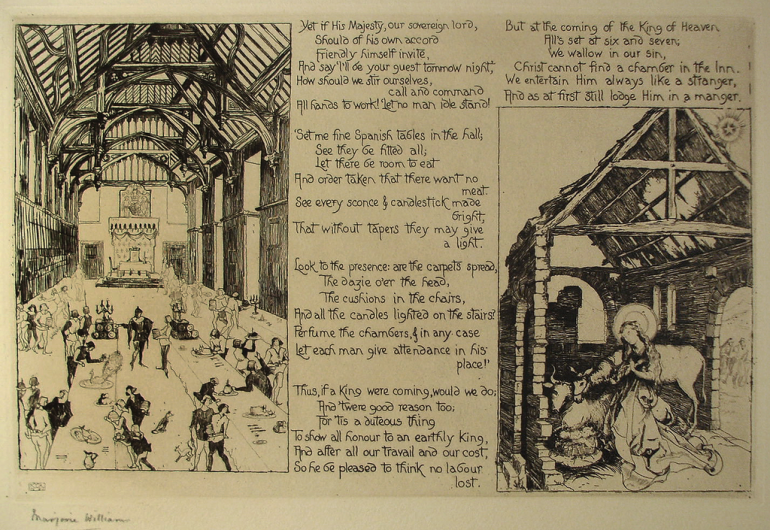 Yet if His Majesty, our sovereign lord,
Should of his own accord
Friendly himself invite,
And say 'I'll be your guest tomorrow night,'
How should we stir ourselves,
call and command
All hands to work! 'Let no man idle stand!
'Set me fine Spanish tables in the hall;
See they be fitted all;
Let there be room to eat
And order taken that there want no
meat.
See every sconce & candlestick made
bright,
That without tapers they may give
a light.
Look to the presence: are the carpets spread,
The dazie o'er the head,
The cushions in the chairs,
And all the candles lighted on the stairs?
Perfume the chambers, & in any case
Let each man give attendance in his
place!'
Thus, if a King were coming, would we do;
And 'twere good reason too;
For 'tis a duteous thing
To show all honour to an earthly King,
And after all our travail and our cost,
So he be pleased to think no labour
lost.
But at the coming of the King of Heaven
All's set at six and seven;
We wallow in our sin,
Christ cannot find a chamber in the Inn.
We entertain Him always like a stranger,
And as at first still lodge Him in a manger.
Marjorie William